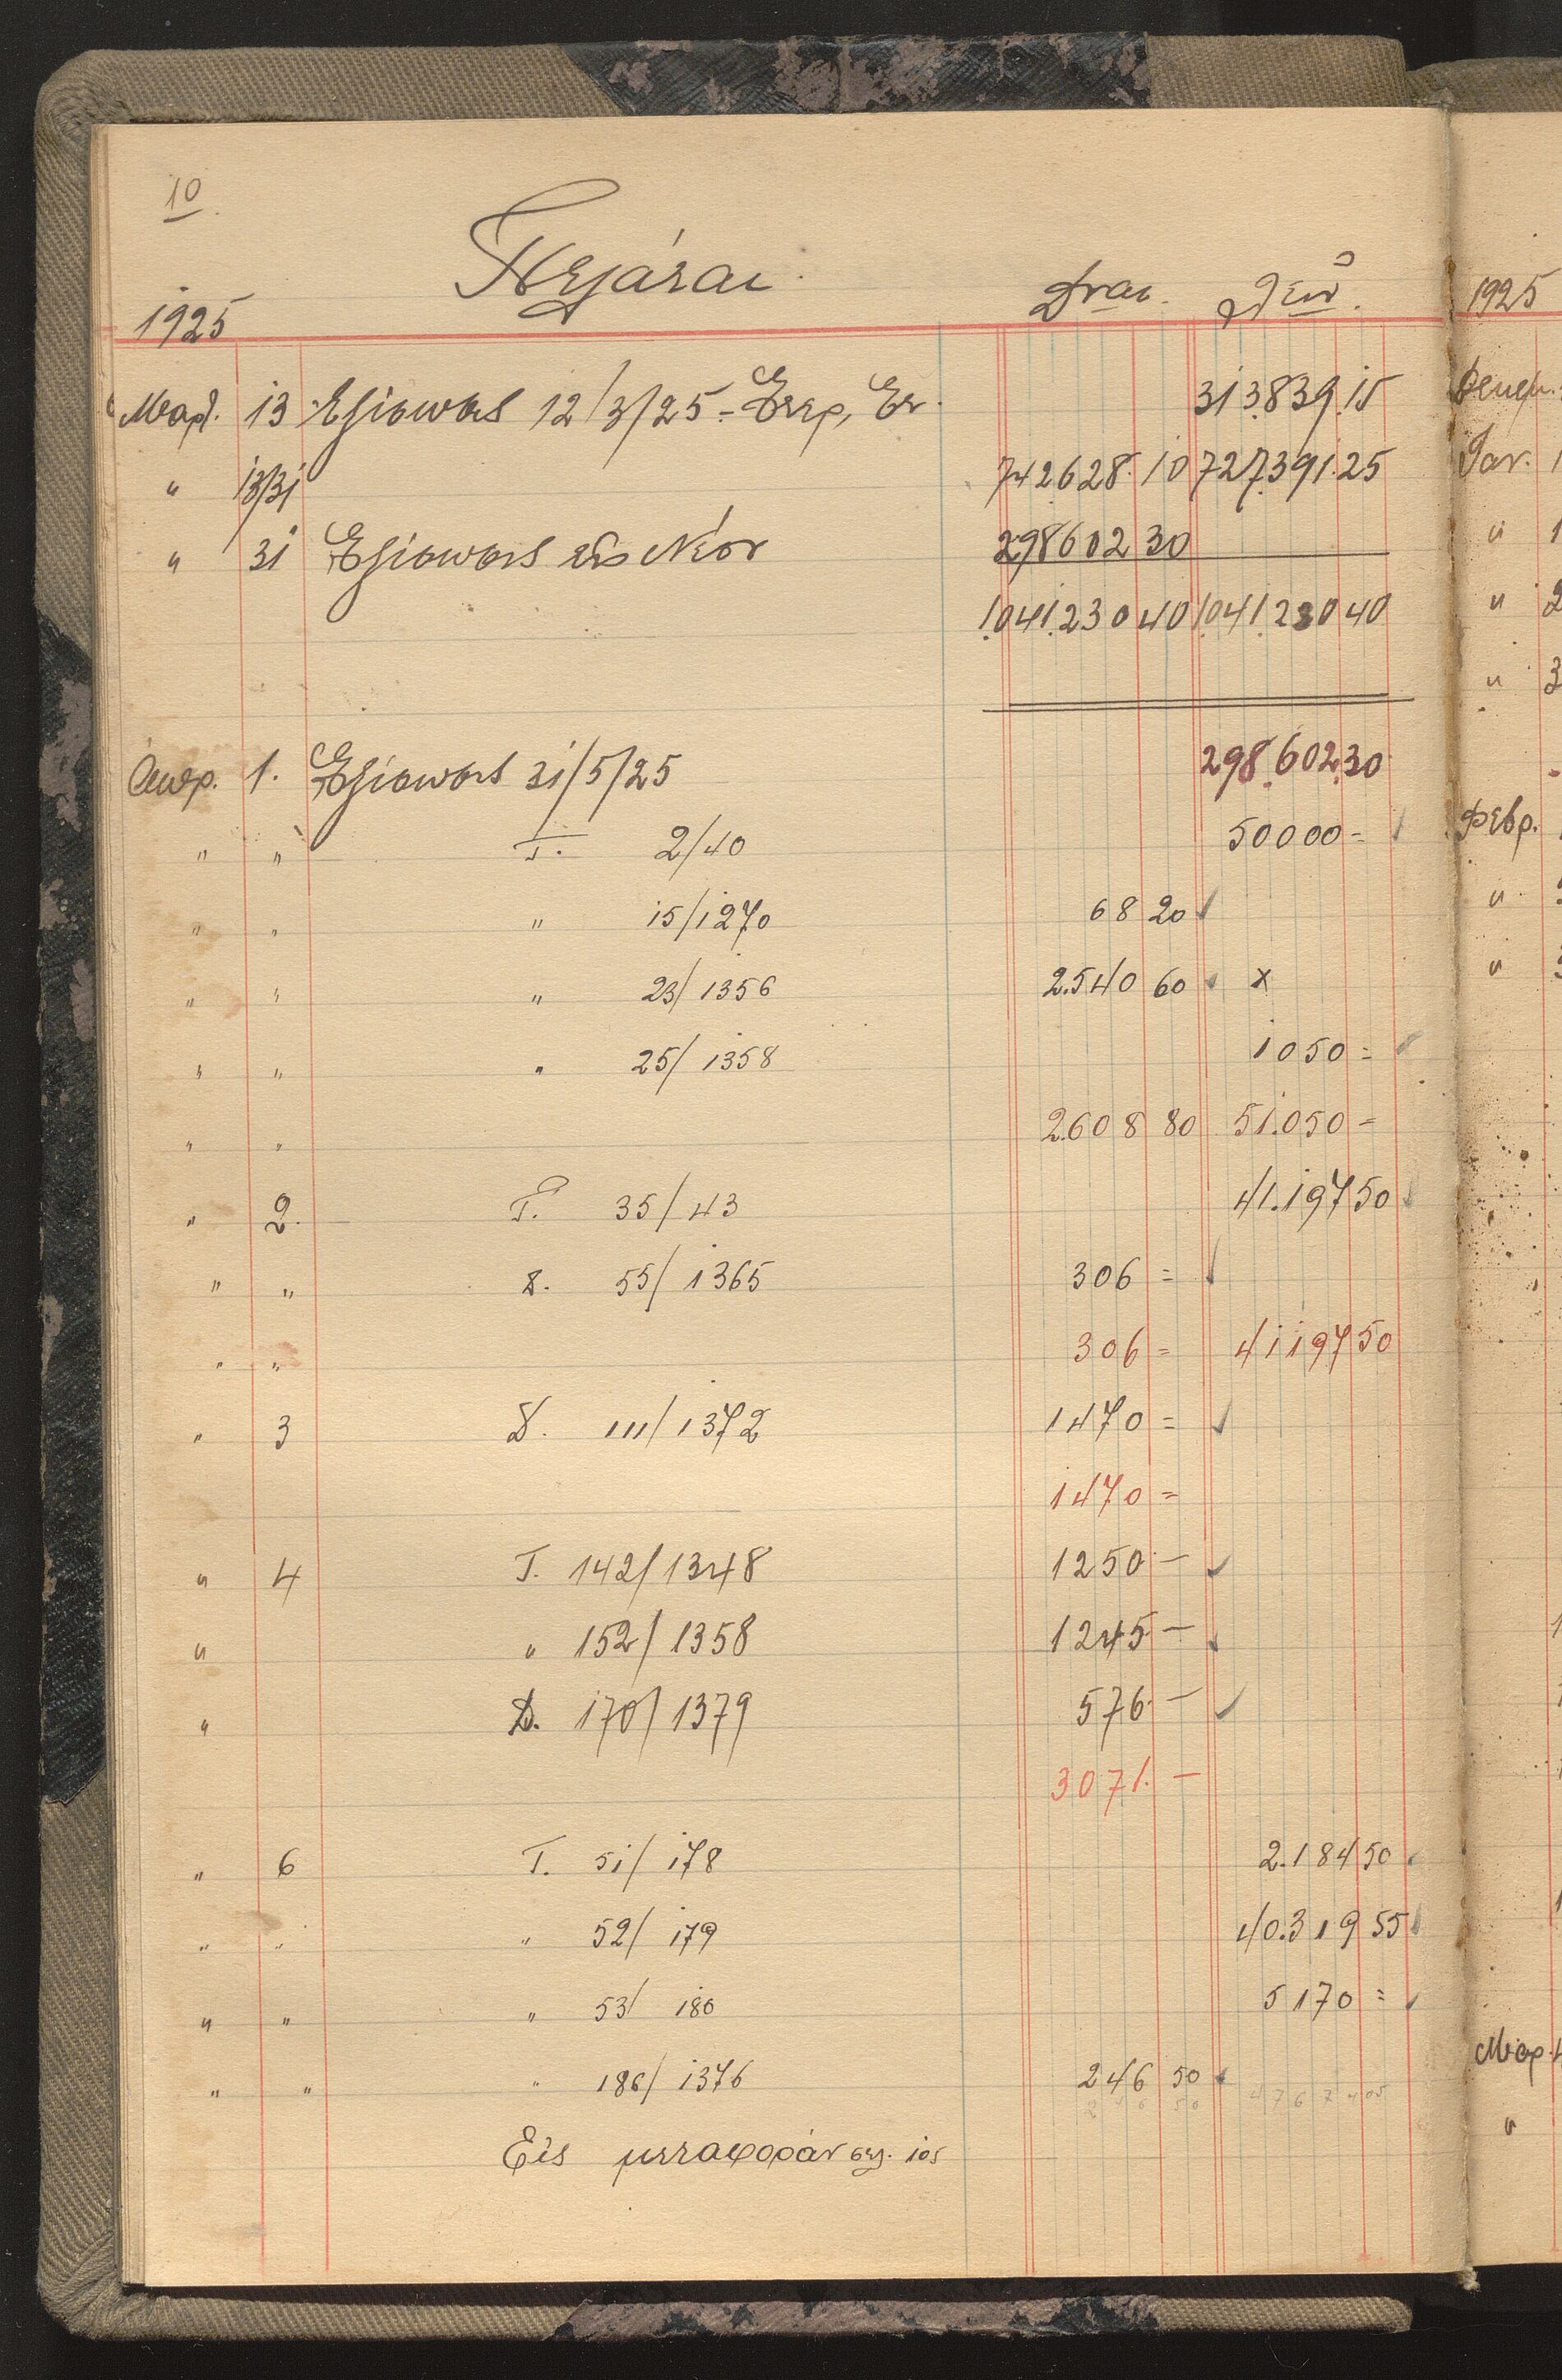 10
Πελάται
1925 Δναι. Λειν.
Μαρτ. 13 Εξίσωσις 12/3/25 - 313.839.15
" 13/31 742628.10 727.391.25
" 31 Εξίσωσις εις Νέον 298602 30
1.041.230 40 1.041.230 40
1. Εξίσωσις 31/5/25 298.602.30
" " Τ. 2/40 50000 =
" " " 15/1270 68 20
" " " 23/1356 2.540 60 x
" " " 25/1358 1050 =
" " 2.608 80 51.050 =
" 2. Τ. 35/43 41.197 50
" " Δ. 55/1365 306 =
" " 306 = 41197 50
" 3 Δ. 111/1372 1470 =
1470 =
" 4 Τ. 142/1348 1250 -
" " 152/1358 1245 -
" Δ. 170/1379 576 -
3071. -
" 6 Τ. 51/178 2.184 50
" " " 52/179 40.319 55
" " " 53/180 5170 =
" " " 186/1376 246 50
246 50 47674 05
Εις μεταφοράν σελ. 105
1925
Ιαν. 1
" 1
" 2
" 3
Φεβρ.
"
"
Μαρ. 4
"